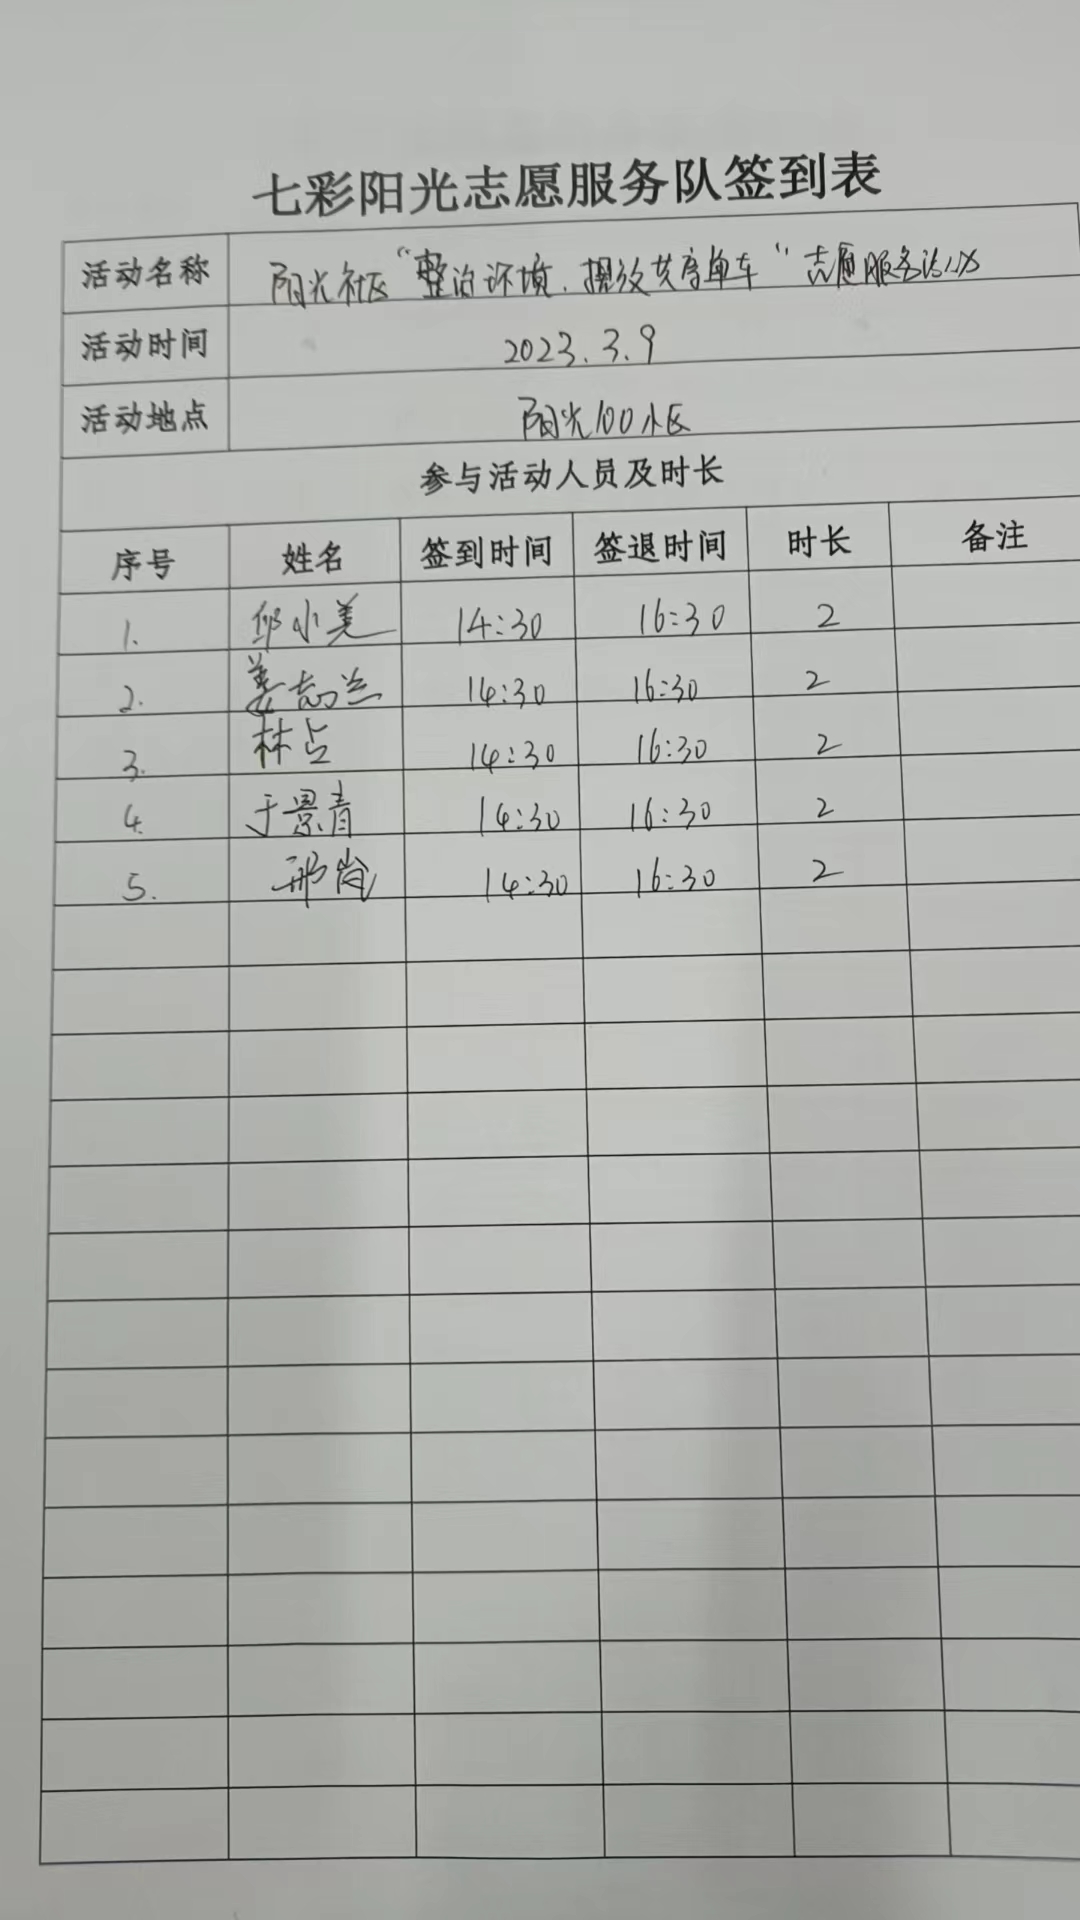 七彩阳光志愿服务队签到表
活动名称 阳光社区“整治环境、摆放共享单车”志愿服务活动
活动时间 2023.3.9
活动地点 阳光100小区
参与活动人员及时长
序号 姓名 签到时间 签退时间 时长 备注
1. 邱小美 14:30 16:30 2
2. 姜志兰 14:30 16:30 2
3. 林占 14:30 16:30 2
4. 于景青 14:30 16:30 2
5. 邢岗 14:30 16:30 2